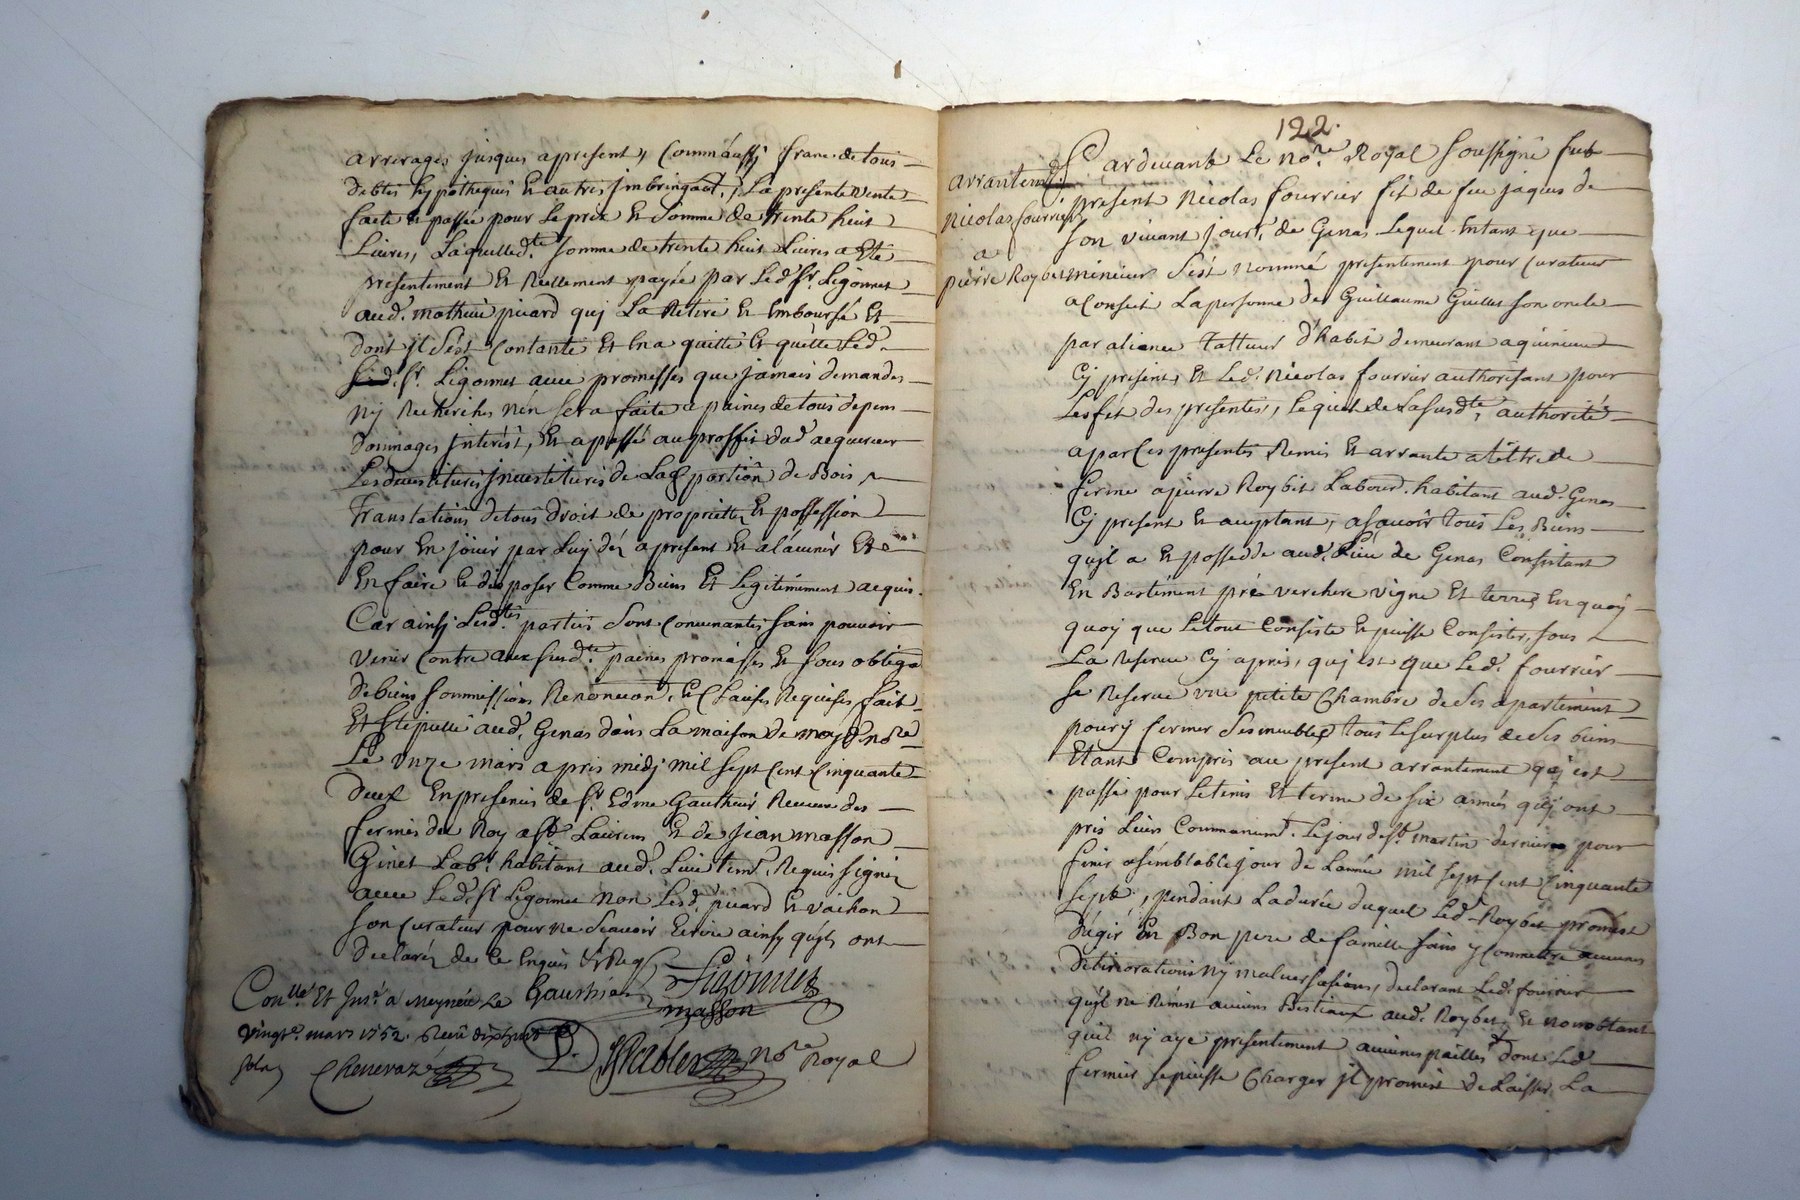 arrerages jusques apresent, Comm'aussi franc de tous
debtes hypotheques et autres imbringaon.s, La presente vente
faite et passée pour le prix et somme de trente huit
Livres, Laquelle d.te somme de trente huit Livres a eté
presentement et Reellement payée par Led. Sr. Ligonnet
aud. mathieu picard qui La Retiré et Emboursé Et
dont il s'est Contanté Et En a quitté Et quitte Led.
Sr. Ligonnet avec promesses que jamais demandes
ny Recherches n'en sera faite a paines de tous depens
dommages interêst, Et a passé au proffit dud. acquereur
Les devestitures investitures de Lad. portion de Bois
Translations de tous droit de proprietté Et possession
pour En joüir par Luy déz apresent Et a l'avenir Et
En faire Et disposer Comme Biens Et Legitimement acquis.
Car ainsy Lesd.tes parties sont Convenantes sans pouvoir
venir Contre aux susd.tes paines promesses Et sous obliga.on
de biens sommissions Renonciaon.s Et Clauses Requises, fait
Et stipullé aud. Genas dans La maison de moyd. no.re
Le unze mars apres midj mil sept Cent Cinquante
deux En presences de Sr. Edme Gauthier Receveur des
fermes du Roy a St. Laurens Et de jean masson
Ginet Lab.r habitant aud. Lieu tem.s Requis signéz
avec Led. Sr. Ligonnet non Lesd. picard Et vachon
son Curateur pour ne Scavoir Ecrire ainsy qu'ils ont
declaréz de ce Enquis & Req.s
Gauthier Ligonnet
masson
Con.lle Et Ins.é a Meyzieu Le
vingt.e mars 1752. Reçu dixhuit
sols Chenevaz
Rabler no.re Royal
122.
arrantem.t
nicolas fourrier
a
pierre Roybet
Pardevant Le no.re Royal soussigné fut
present nicolas fourrier fils de feu jaques de
son vivant jour.r de Genas Lequel Entant que
mineur s'est nommé presentement pour Curateur
a Conseil La personne de Guillaume Guillet son oncle
par aliance Tailleur d'habit demeurant a
Cy present, et Led. nicolas fourrier authorisant pour
L'effet des presentes, Lequel de La susd.te authorité
a par Ces presentes Remis Et arranté a tittre de
ferme a pierre Roybet Labour.r habitant aud. Genas
Cy present Et acceptant, a Sçavoir tous Les Biens
qu'jl a Et possedde aud. Lieu de Genas Consistant
En Bastiment pré verchere vigne Et terres En quoy
quoy que Le tout Consiste Et puisse Consister, sous
La Reserve Cy apres, qui est que Led. fourrier
se Reserve une petite Chambre de ses apartement
pour y fermer ses meubles tous Le surplus de ses biens
Etant Compris au present arrantement qui est
passé pour Le tems Et terme de six année qui ont
pris Leurs Commancem.t Le jour de St. martin dernier pour
finir a semblable jour de L'année mil sept Cent Cinquante
sept, pendant La durée duquel Led. Roybet promest
d'agir En Bon pere de famille sans y Commettre aucunes
deteriorations ny malversations, declarant Led. fourrier
qu'jl ne Remest aucuns Bestiaux aud. Roybet, Et nonobstant
qu'il n'y aye presentement aucunes pailles dont Led.
fermier se puisse Charger jl promest de Laisser La